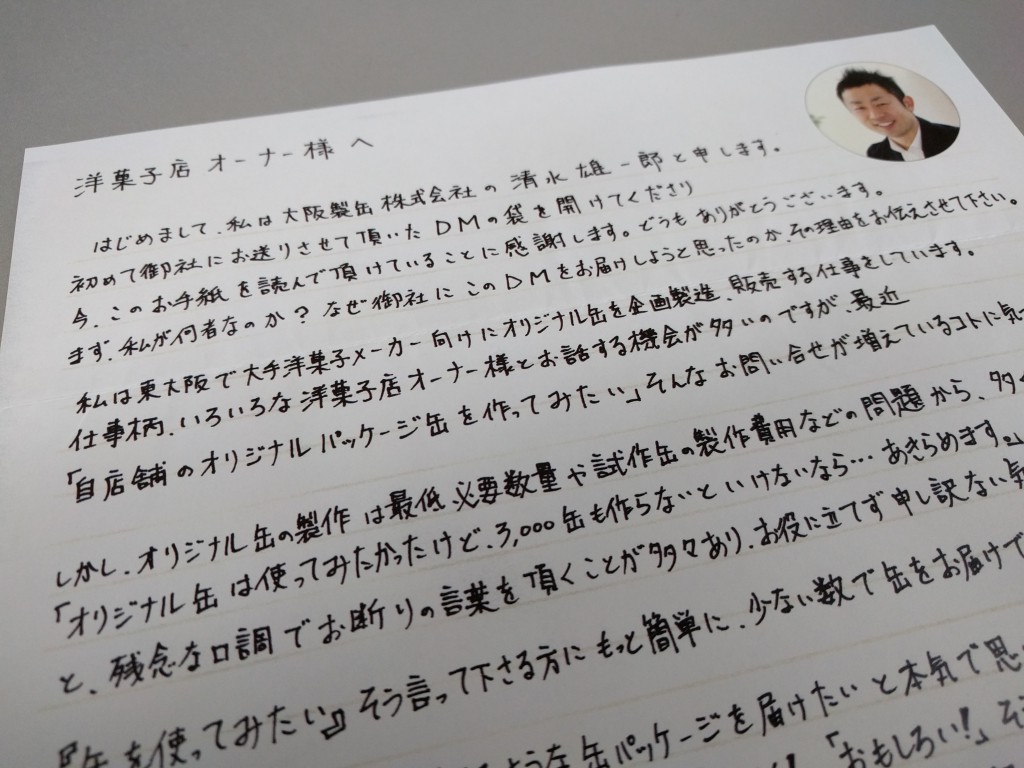 洋菓子店オーナー様へ
はじめまして、私は大阪製缶株式会社の清水雄一郎と申します。
初めて御社にお送りさせて頂いたDMの袋を開けてくださり
今、このお手紙を読んで頂けていることに感謝します。どうもありがとうございます。
まず、私が何者なのか?なぜ御社にこのDMをお届けしようと思ったのか、その理由をお伝えさせて下さい。
私は東大阪で大手洋菓子メーカー向けにオリジナル缶を企画製造、販売する仕事をしています。
仕事柄、いろいろな洋菓子店オーナー様とお話する機会が多いのですが、最近
「自店舗のオリジナルパッケージ缶を作ってみたい」そんなお問い合せが増えているコトに気
しかし、オリジナル缶の製作は最低必要数量や試作缶の製作費用などの問題から、多く
「オリジナル缶は使ってみたかったけど、3,000缶も作らないといけないなら…あきらめます。」
と、残念な口調でお断りの言葉を頂くことが多々あり、お役に立てず申し訳ない気
『缶を使ってみたい』そう言って下さる方にもっと簡単に、少ない数で缶をお届けで
ような缶パッケージを届けたいと本気で思
「おもしろい!」そ